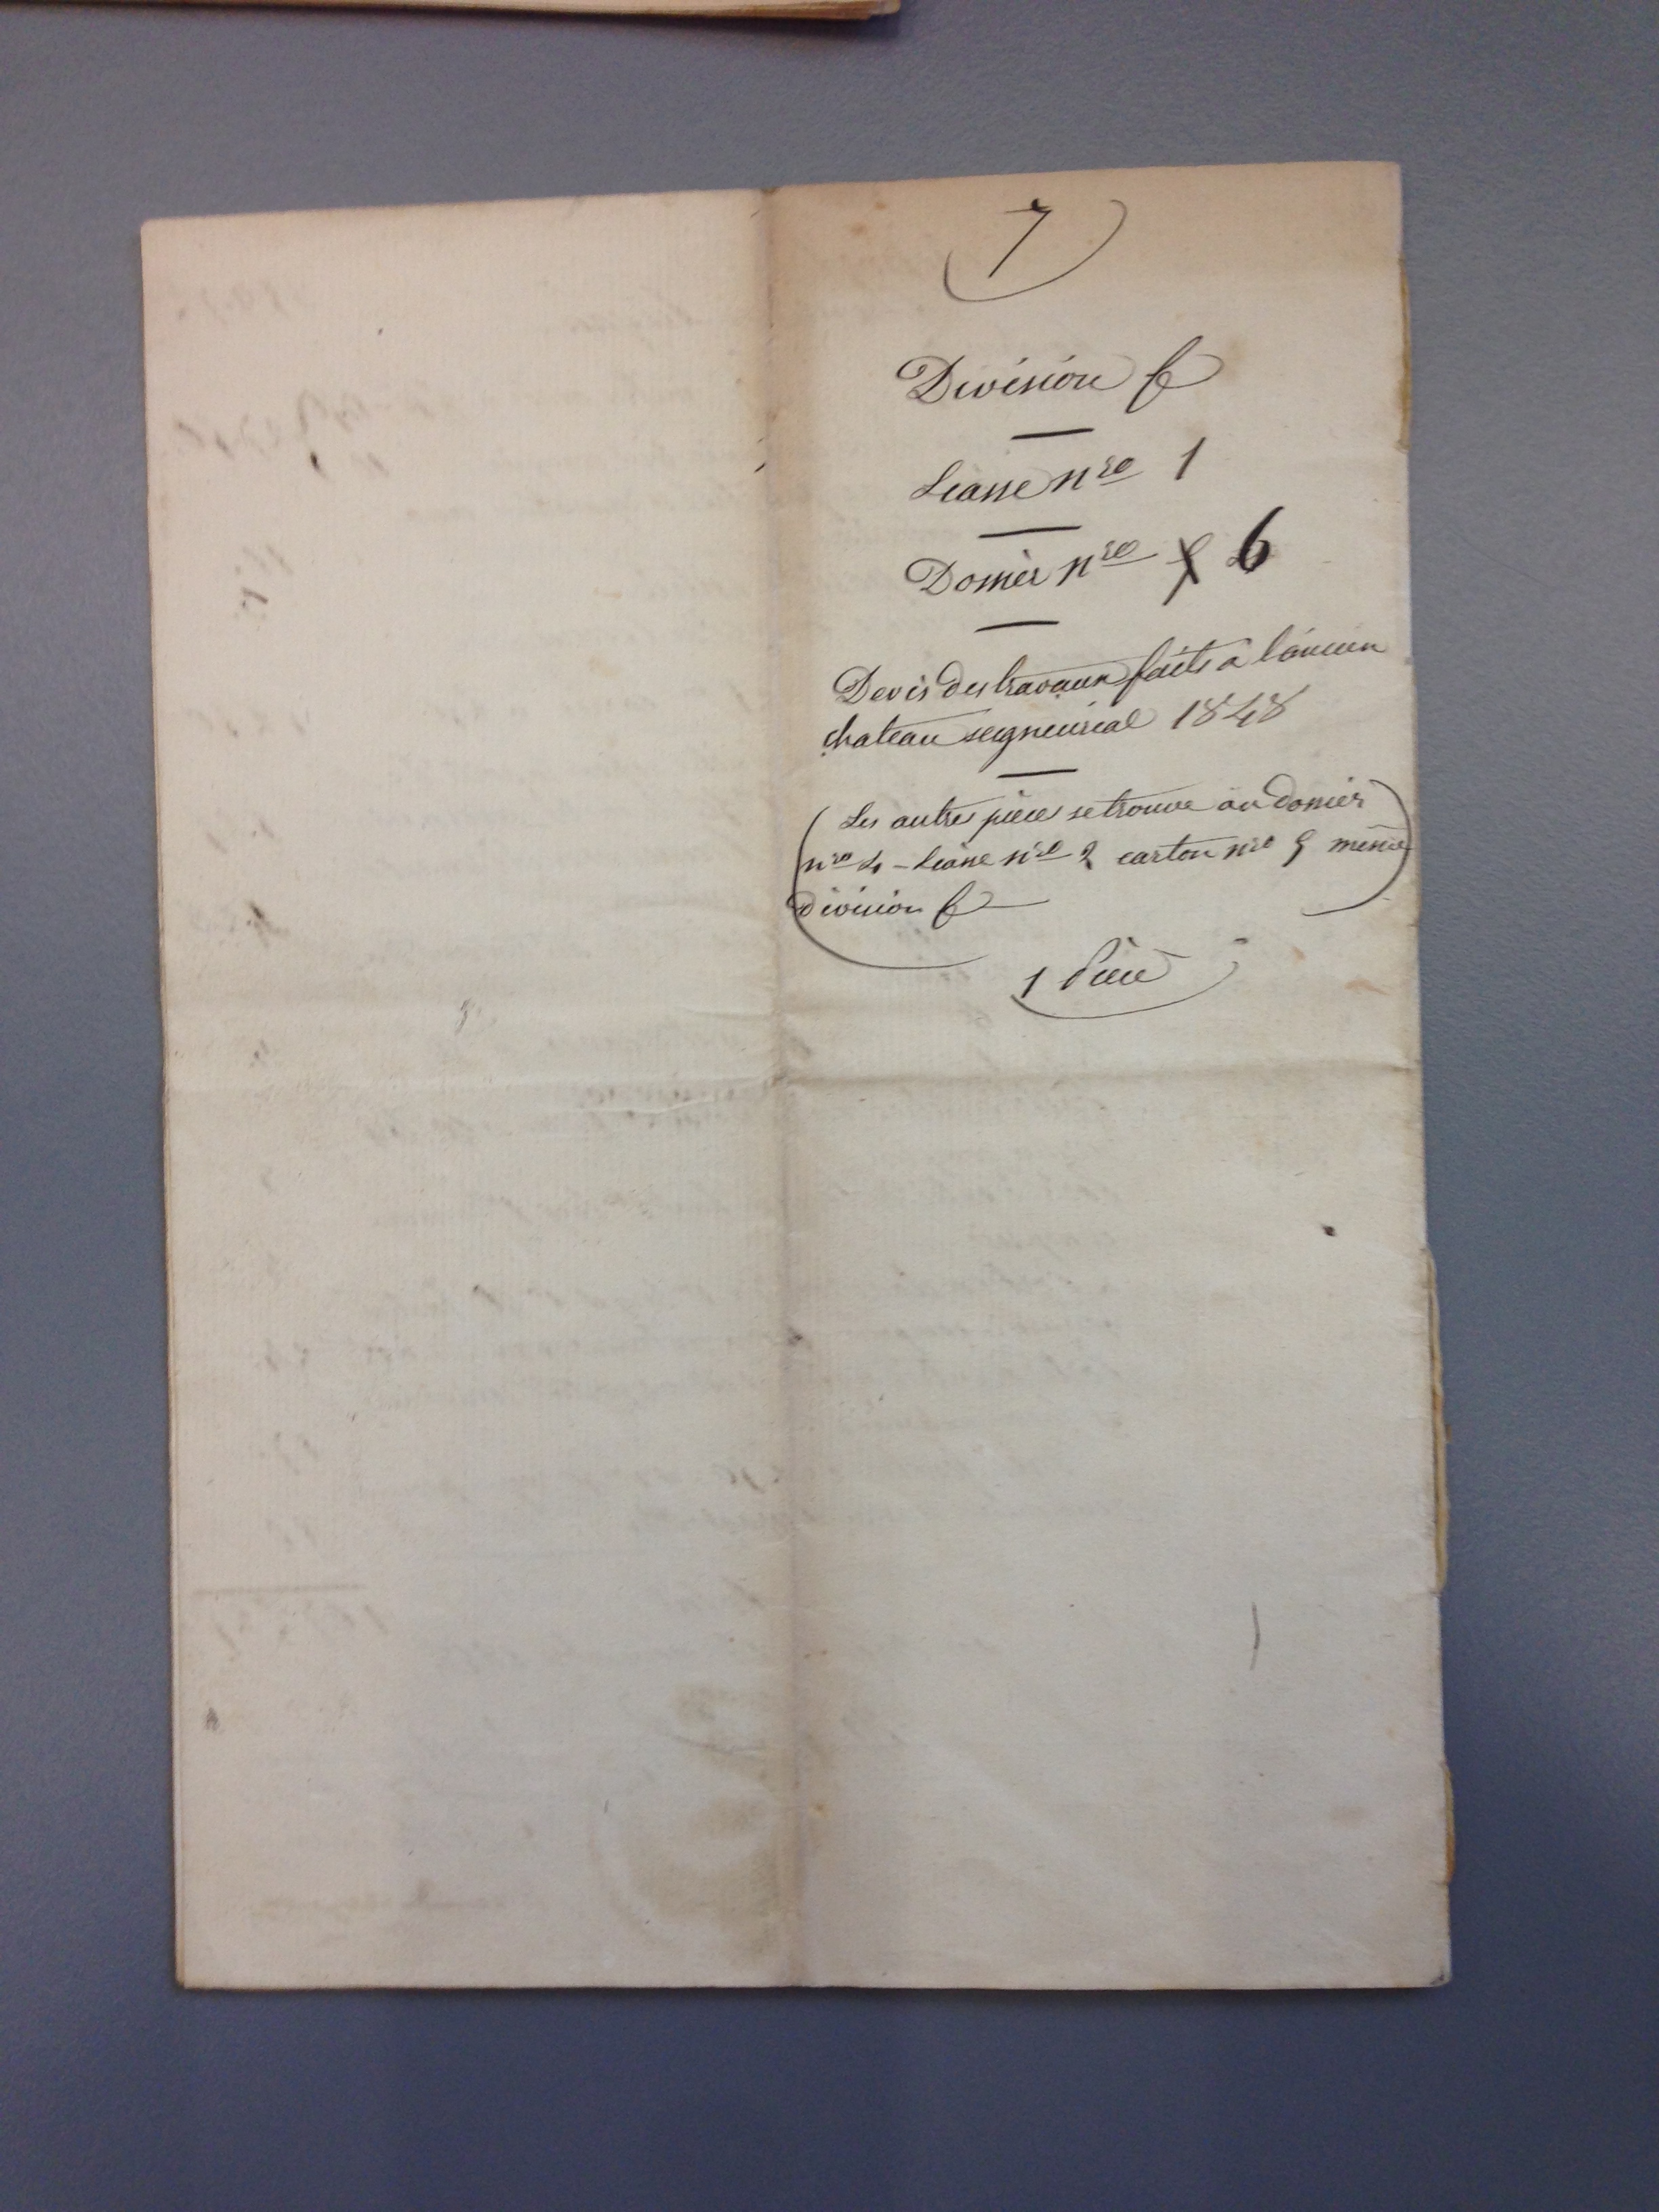 7
Division f
Liasse nro 1
Dossier nro 6
Devis des travaux faits a l'ancien
chateau seigneurial 1848
(Les autres pièces se trouve au dossier
nro 4 - Liasse nro 2 carton nro 5 même
division f)
1 Pièce